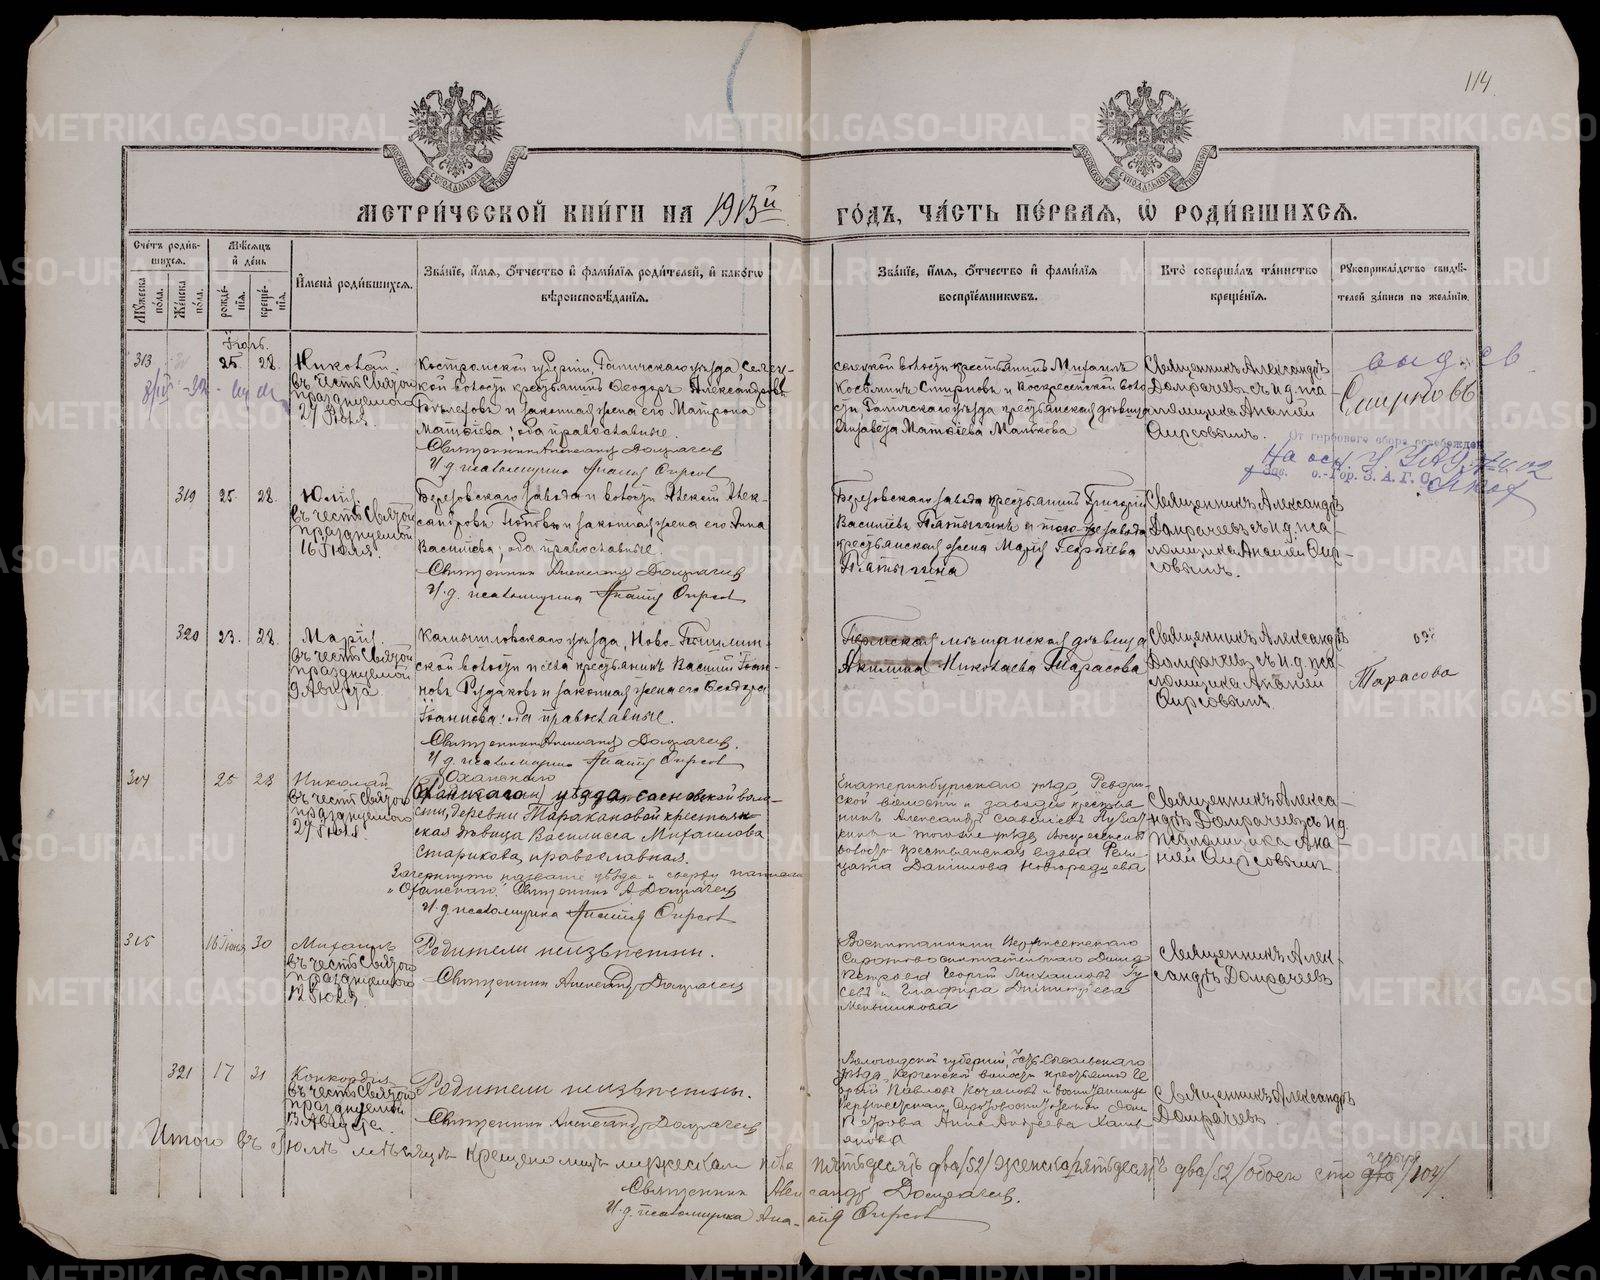 114
МЕТРИ́ЧЕСКОЙ КНИ́ГИ НА 1913й ГО́ДЪ, ЧА́СТЬ ПЕ́РВАЯ, Ѿ РОДИ́ВШИХСЯ.
Сче́тъ роди́в-
шихся.
Му́жеска по́ла.
Же́нска по́ла.
Мѣ́сяцъ и де́нь
рожде́нія.
креще́нія.
И́мена̀ роди́вшихся.
Зва́ніе, и́мя, о́тчество и фами́лія роди́телей, и како́гѡ
вѣроисповѣ́данія.
Зва́ніе, и́мя, о́тчество и фами́лія
воспріе́мникѡвъ.
Кто̀ соверша́лъ та́инство
креще́нія.
Рукоприкла́дство свидѣ́-
телей за́писи по жела́нію.
Іюль.
313 25 28
Николай.
въ честь Святого
празднуемого
27 Іюля.
Костромской губерніи, Галичскаго уѣзда, Селец-
кой волости крестьянинъ Ѳеодоръ Александровъ
и законная жена его Матрона
Матѳіева; оба православные.
Священникъ Александръ Домрачевъ
И. д. псаломщика Ананій Фирсовъ
селецкой волости крестьянинъ Михаилъ
Смирновъ и Воскресенской воло
сти Галичскаго уѣзда крестьянская дѣвица
Елизавета Матѳіева Малькова
Священникъ Александръ
Домрачевъ съ и. д. пса
ломщика Ананіем
Фирсовымъ.
Смирновъ
От гербового сбора освобожден
о.-Гор. З. А. Г. С.
319 25. 28.
Юлія.
въ честь Святой
празднуемой
16 Іюля.
Березовскаго завода и волости Алексій Алек-
сандровъ Поповъ и законная жена его Анна
Васильева; оба православные.
Священникъ Александръ Домрачевъ
И. д. псаломщика Ананій Фирсовъ
Березовскаго завода крестьянинъ Григорій
Васильевъ Пятыгинъ и того-же завода
крестьянская жена Марія Георгіева
Пятыгина
Священникъ Александръ
Домрачевъ съ и. д. пса-
ломщика Ананіем Фир-
совымъ.
320 23. 28.
Марія.
въ честь Святой
празднуемой
9 Августа.
Камышловскаго уѣзда, Ново-Пышмин-
ской волости и села крестьянинъ Василій Іоан-
новъ Рудаковъ и законная жена его Ѳеодора
Іоаннова; оба православные.
Священникъ Александръ Домрачевъ.
И. д. псаломщика Ананій Фирсовъ
Пермская мѣщанская дѣвица
Акилина Николаева Тарасова
Священникъ Александръ
Домрачевъ съ и. д. пса-
ломщика Ананіем
Фирсовымъ
Тарасова
25 28
Николай
въ честь Святого
празднуемого
27 Іюля
Оханскаго
уѣзда, сосновской воло
сти, деревни Таракановой крестьян
ская дѣвица Василиса Михаилова
Старикова, православная.
Зачеркнуто названіе уѣзда и сверху написано
„Оханскаго“ Священникъ А Домрачевъ
И. д. псаломщика Ананій Фирсовъ
Екатеринбургскаго уѣзда, Ревдин
ской волости и завода крестья
нинъ Александръ Савельевъ
и того же уѣзда
волости крестьянская вдова
Данилова Новгородцева
Священникъ Алекса-
ндръ Домрачевъ съ и д
псаломщика Ана-
ніем Фирсовымъ
315 16 Іюня 30
Михаилъ
въ честь Святого
празднуемого
12 Іюля.
Родители неизвѣстны.
Священникъ Александръ Домрачевъ
Воспитанники Верхисетскаго
Сиротовоспитательнаго Дома
Петрова Георгій Михаиловъ Гу
севъ и Глафира Димитріева
Меньшикова
Священникъ Алек
сандръ Домрачевъ
321 17 31
Конкордія
въ честь Святой
празднуемой
13 Августа.
Родители неизвѣстны.
Священникъ Александръ Домрачевъ
Вологодской губерніи, Усть-Сысольскаго
уѣзда, Керчемской волости крестьянинъ Ге
оргій Павловъ Кочановъ и воспитанница
Верхисетскаго Сиротовоспитательнаго Дома
Петрова Анна Андреева
Священникъ Александръ
Домрачевъ.
Итого въ Іюлѣ мѣсяцѣ крещено лицъ мужескаго пола пятьдесятъ два /52/ женска пятьдесятъ два /52/ обоего сто два четыре /104/
Священникъ Александръ Домрачевъ.
И. д. псаломщика Ана-ній Фирсовъ